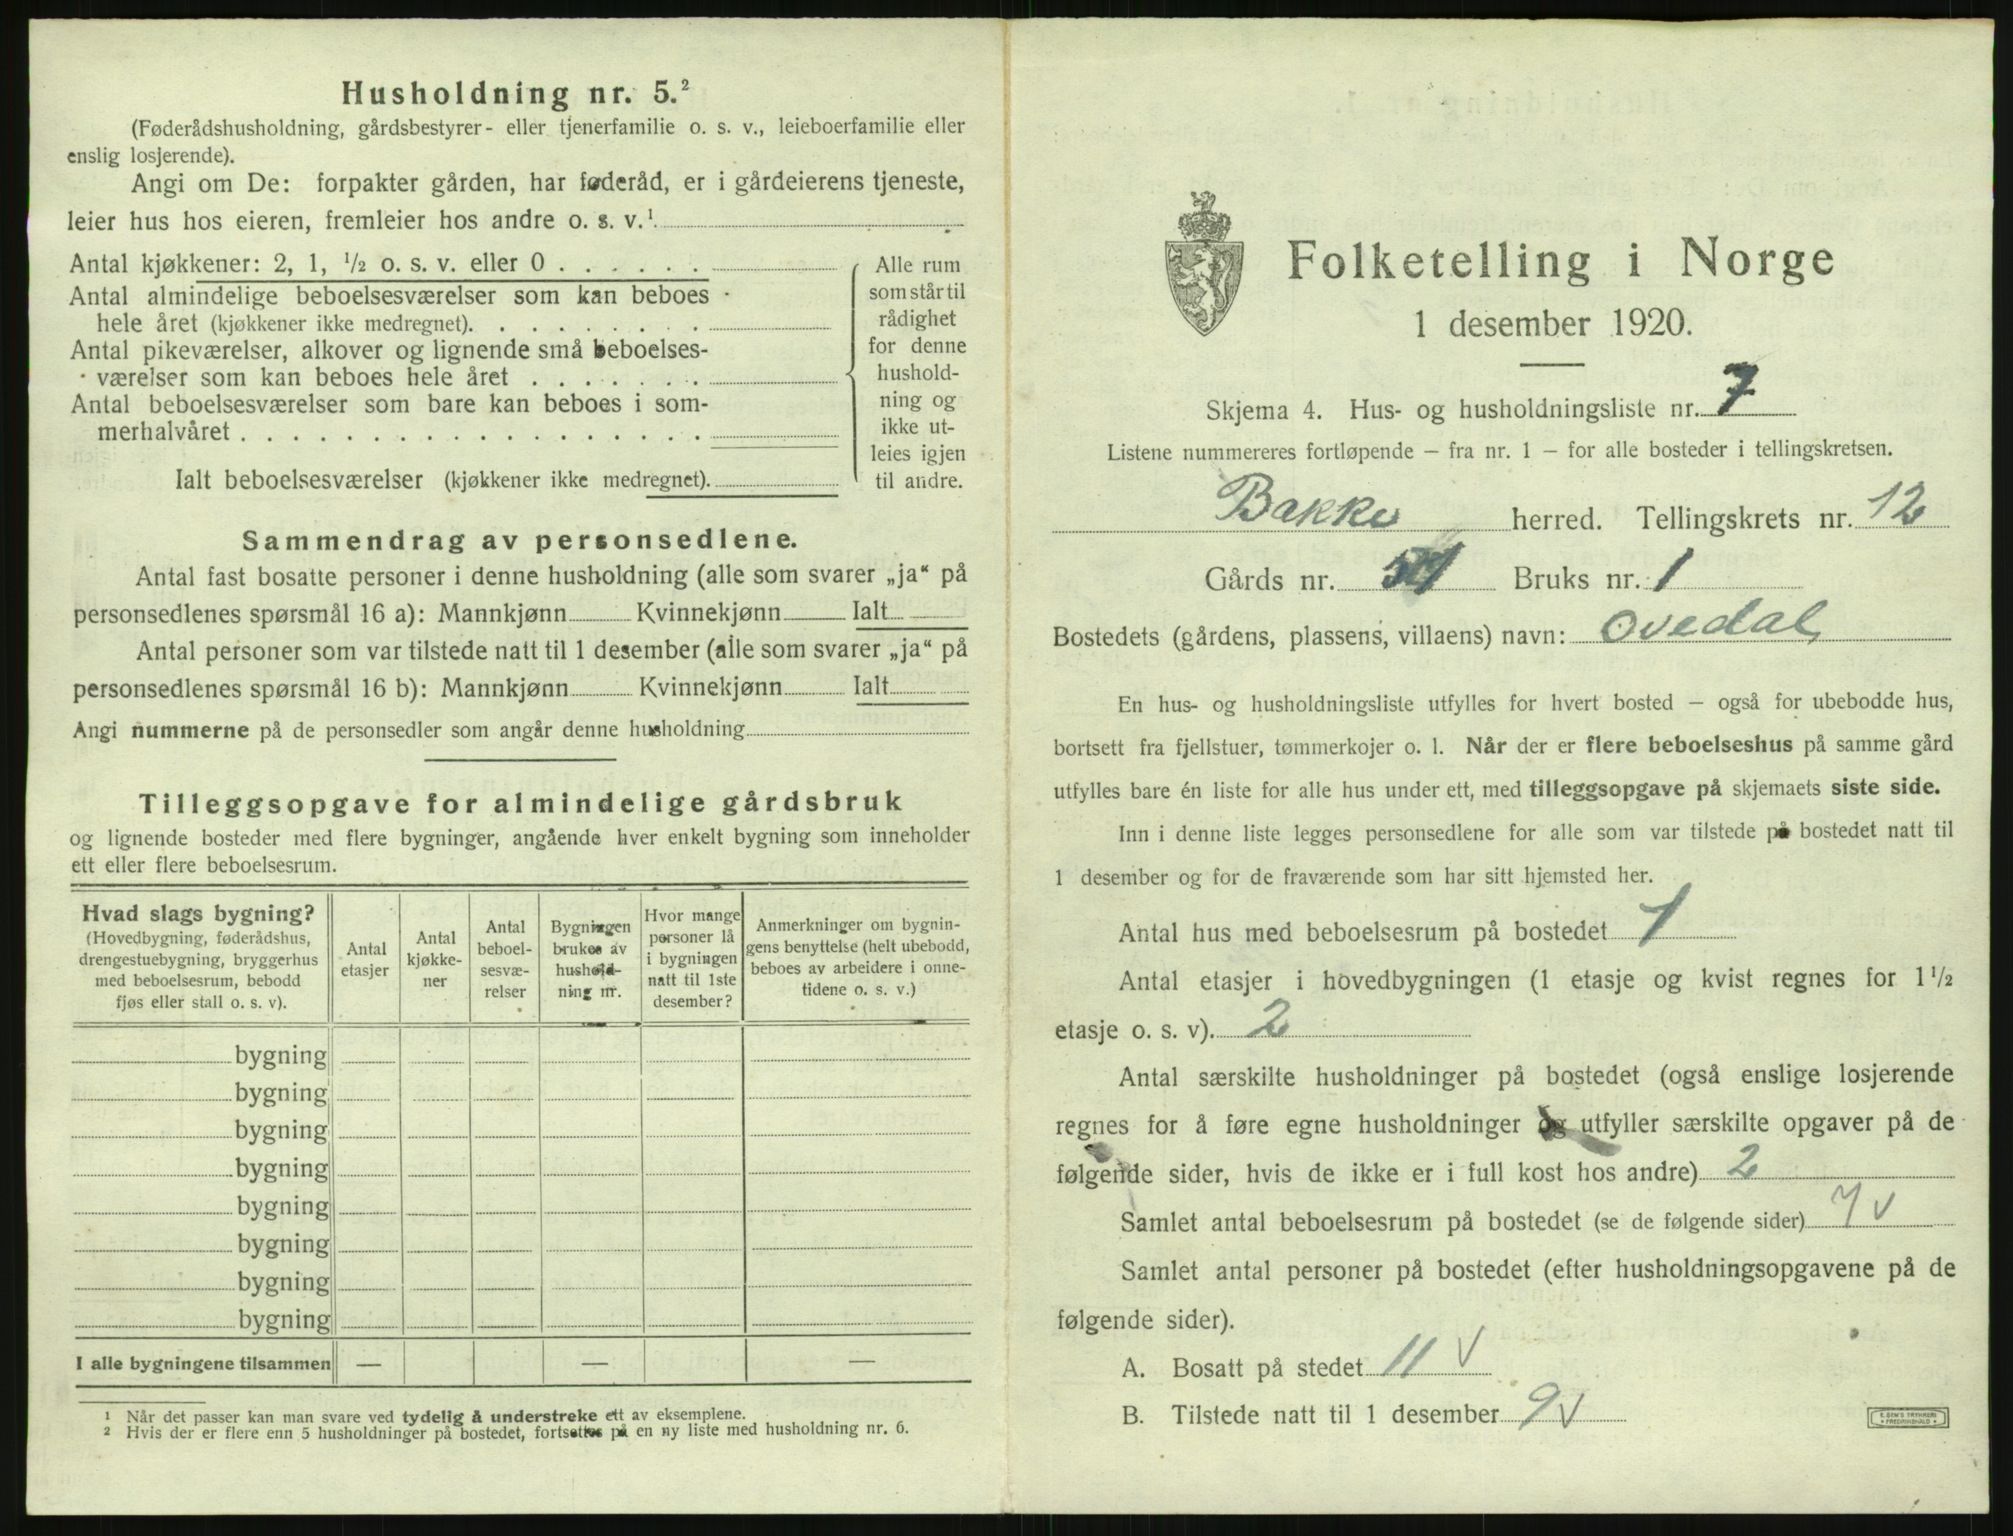 Husholdning nr. 5.²
(Føderådshusholdning, gårdsbestyrer- eller tjenerfamilie o. s. v., leieboerfamilie eller
enslig losjerende).
Angi om De: forpakter gården, har føderåd, er i gårdeierens tjeneste,
leier hus hos eieren, fremleier hos andre o. s. v.¹
Antal kjøkkener: 2, 1, ½ o. s. v. eller 0 . . . . . .
Antal almindelige beboelsesværelser som kan beboes
hele året (kjøkkener ikke medregnet). . . . . . . . .
Antal pikeværelser, alkover og lignende små beboelses-
værelser som kan beboes hele året . . . . . . .
Antal beboelsesværelser som bare kan beboes i som-
merhalvåret . . . . . . . . . . . . . . . . . .
Ialt beboelsesværelser (kjøkkener ikke medregnet).
Alle rum
som står til
rådighet
for denne
hushold-
ning og
ikke ut-
leies igjen
til andre.
Sammendrag av personsedlene.
Antal fast bosatte personer i denne husholdning (alle som svarer „ja“ på
personsedlenes spørsmål 16 a): Mannkjønn Kvinnekjønn Ialt
Antal personer som var tilstede natt til 1 desember (alle som svarer „ja“ på
personsedlenes spørsmål 16 b): Mannkjønn Kvinnekjønn Ialt
Angi nummerne på de personsedler som angår denne husholdning
Tilleggsopgave for almindelige gårdsbruk
og lignende bosteder med flere bygninger, angående hver enkelt bygning som inneholder
ett eller flere beboelsesrum.
Hvad slags bygning?
(Hovedbygning, føderådshus,
drengestuebygning, bryggerhus
med beboelsesrum, bebodd
fjøs eller stall o. s. v).
Antal
etasjer
Antal
kjøkke-
ner
Antal
beboel-
sesvæ-
relser
Bygningen
brukes av
hushold-
ning nr.
Hvor mange
personer lå
i bygningen
natt til 1ste
desember?
Anmerkninger om bygnin-
gens benyttelse (helt ubebodd,
beboes av arbeidere i onne-
tidene o. s. v.)
bygning
bygning
bygning
bygning
bygning
bygning
bygning
bygning
I alle bygningene tilsammen — — —
¹ Når det passer kan man svare ved tydelig å understreke ett av eksemplene.
² Hvis der er flere enn 5 husholdninger på bostedet, fortsettes på en ny liste med husholdning nr. 6.
Folketelling i Norge
1 desember 1920.
Skjema 4. Hus- og husholdningsliste nr. 7
Listene nummereres fortløpende — fra nr. 1 — for alle bosteder i tellingskretsen.
Bakke herred. Tellingskrets nr. 12
Gårds nr. Bruks nr. 1
Bostedets (gårdens, plassens, villaens) navn: Ovedal
En hus- og husholdningsliste utfylles for hvert bosted — også for ubebodde hus,
bortsett fra fjellstuer, tømmerkojer o. l. Når der er flere beboelseshus på samme gård
utfylles bare én liste for alle hus under ett, med tilleggsopgave på skjemaets siste side.
Inn i denne liste legges personsedlene for alle som var tilstede på bostedet natt til
1 desember og for de fraværende som har sitt hjemsted her.
Antal hus med beboelsesrum på bostedet 1
Antal etasjer i hovedbygningen (1 etasje og kvist regnes for 1½
etasje o. s. v). 2
Antal særskilte husholdninger på bostedet (også enslige losjerende
regnes for å føre egne husholdninger og utfyller særskilte opgaver på de
følgende sider, hvis de ikke er i full kost hos andre) 2
Samlet antal beboelsesrum på bostedet (se de følgende sider) 7 v
Samlet antal personer på bostedet (efter husholdningsopgavene på de
følgende sider).
A. Bosatt på stedet 11 v
B. Tilstede natt til 1 desember 9 v